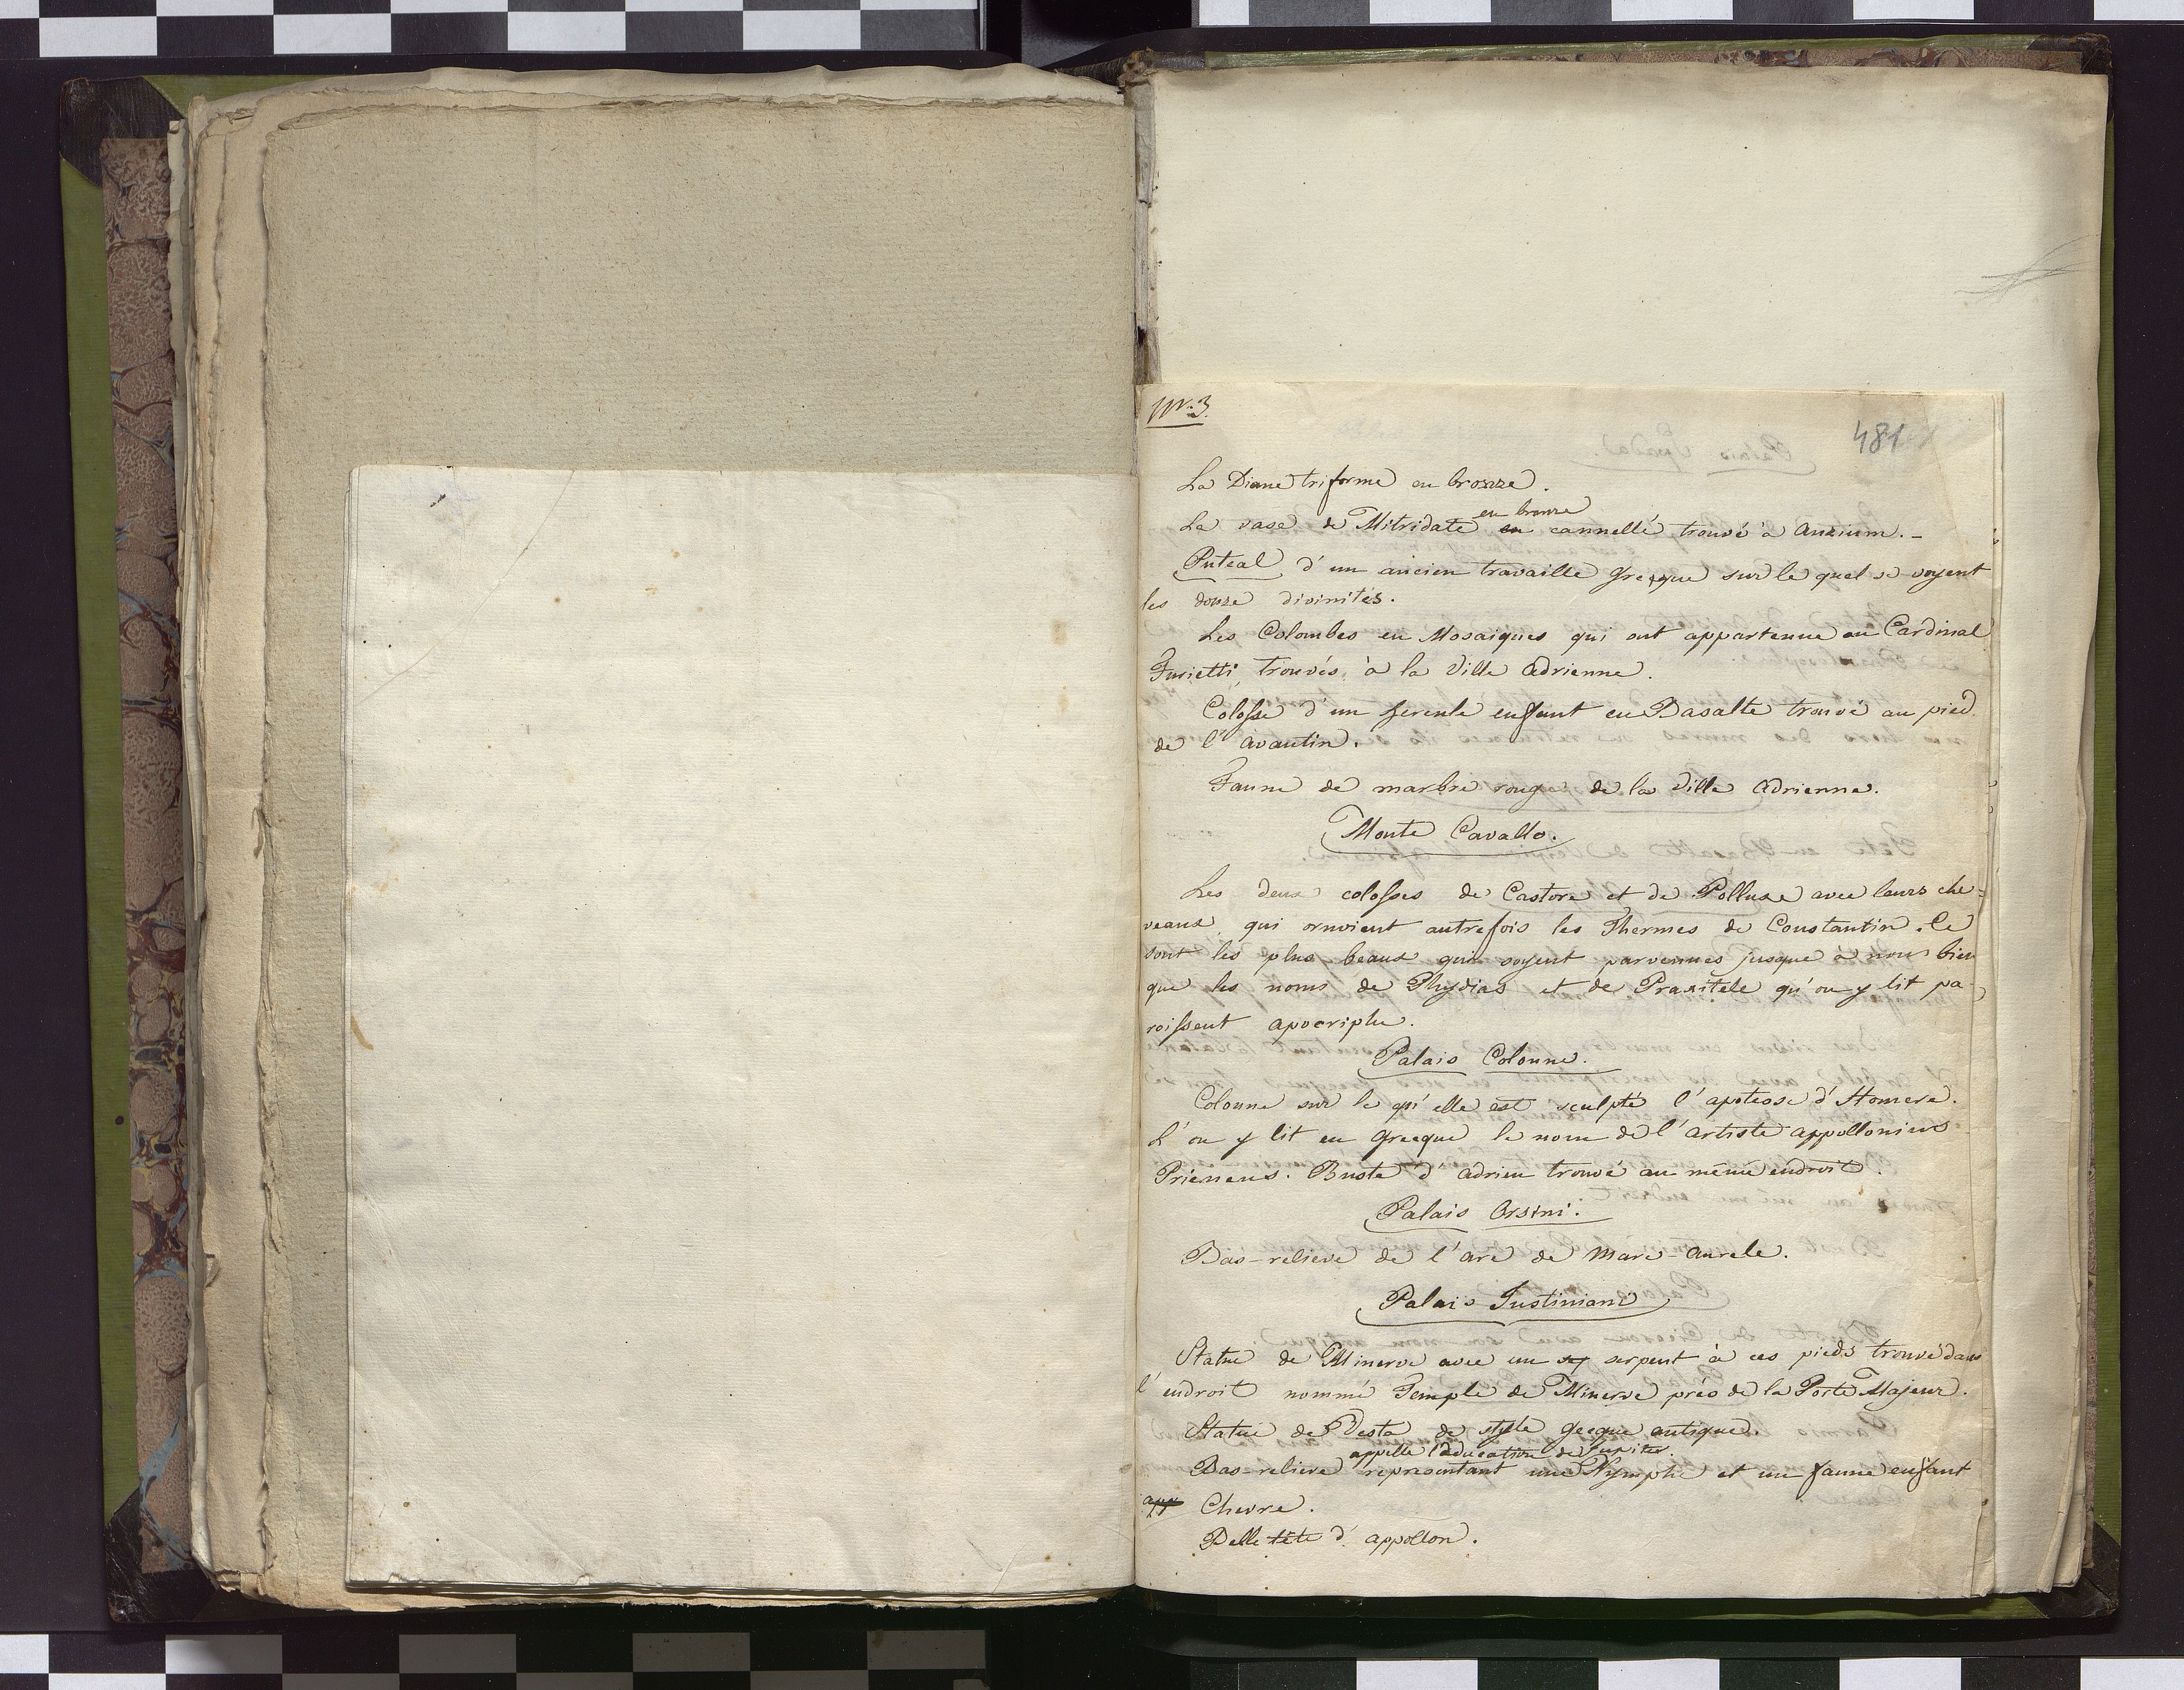 Nr. 3.
481
La Diane triforme en bronze.
en bronze
Le vase de Mitridate en cannellé trouvé à Anzium. -
Puteal d'un ancien travaille Grecque sur le quel se voyent
les douze divinités.
Les Colombes en Mosaiques qui ont appartenue au Cardinal
Furietti, trouvés à la Ville Adrienne.
Colosse d'un hercule enfant en Basalte trouvé au pied
de l'Avantin.
Faune de marbre rouge de la Ville Adrienne.
Monte Cavallo.
Les deux colosses de Castore et de Polluxe avec leurs che=
veaux, qui ornoient autrefois les Thermes de Constantin. Ce
sont les plus beaux qui soyent parvenues jusque à nous bien
que les noms de Phydias et de Praxitele qu'on y lit pa-
roissent apocriphe.
Palais Colonne.
Colonne sur le qu'elle est sculpté l'apoteose d'Homere.
L'on y lit en Grecque le nom de l'artiste appollonius
Prieneus. Buste d'Adrien trouvé au même endroit.
Palais Orsini.
Bas-relieve de l'arc de Marc-Aurele.
Palais Justiniani
Statue de Minerve avec un sep serpent à ces pieds trouvé dans
l'endroit nommé Temple de Minerve prés de la Porte Majeur.
Statue de Vesta de style Gecque antique.
appelle l'education de Jupiter.
Bas-relieve representant une Nymphe et un faune enfant
app Chevre.
Belle tête d'appollon.